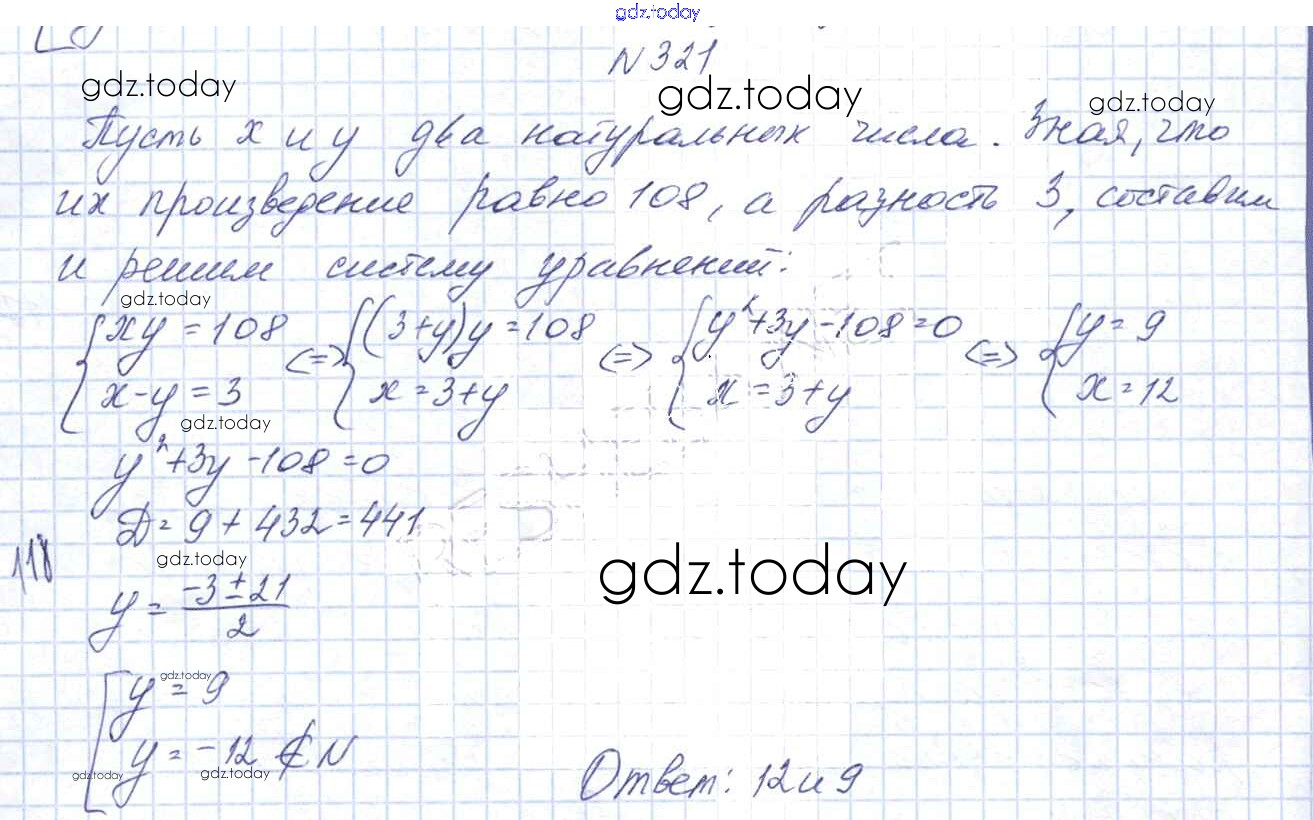 gdz.today
N 321
gdz.today gdz.today gdz.today
Пусть x и y два натуральных числа. Зная, что
их произведение равно 108, а разность 3, составим
и решим систему уравнений:
gdz.today
{xy = 108 <=> {(3+y)y = 108 <=> {y²+3y-108=0 <=> {y = 9
x-y = 3 x = 3+y x = 3+y x = 12
gdz.today
y²+3y-108=0
D = 9 + 432 = 441
118
gdz.today
gdz.today
y = (-3 ± 21)/2
gdz.today
[y = 9
y = -12 ∉ N
gdz.today gdz.today
Ответ: 12 и 9